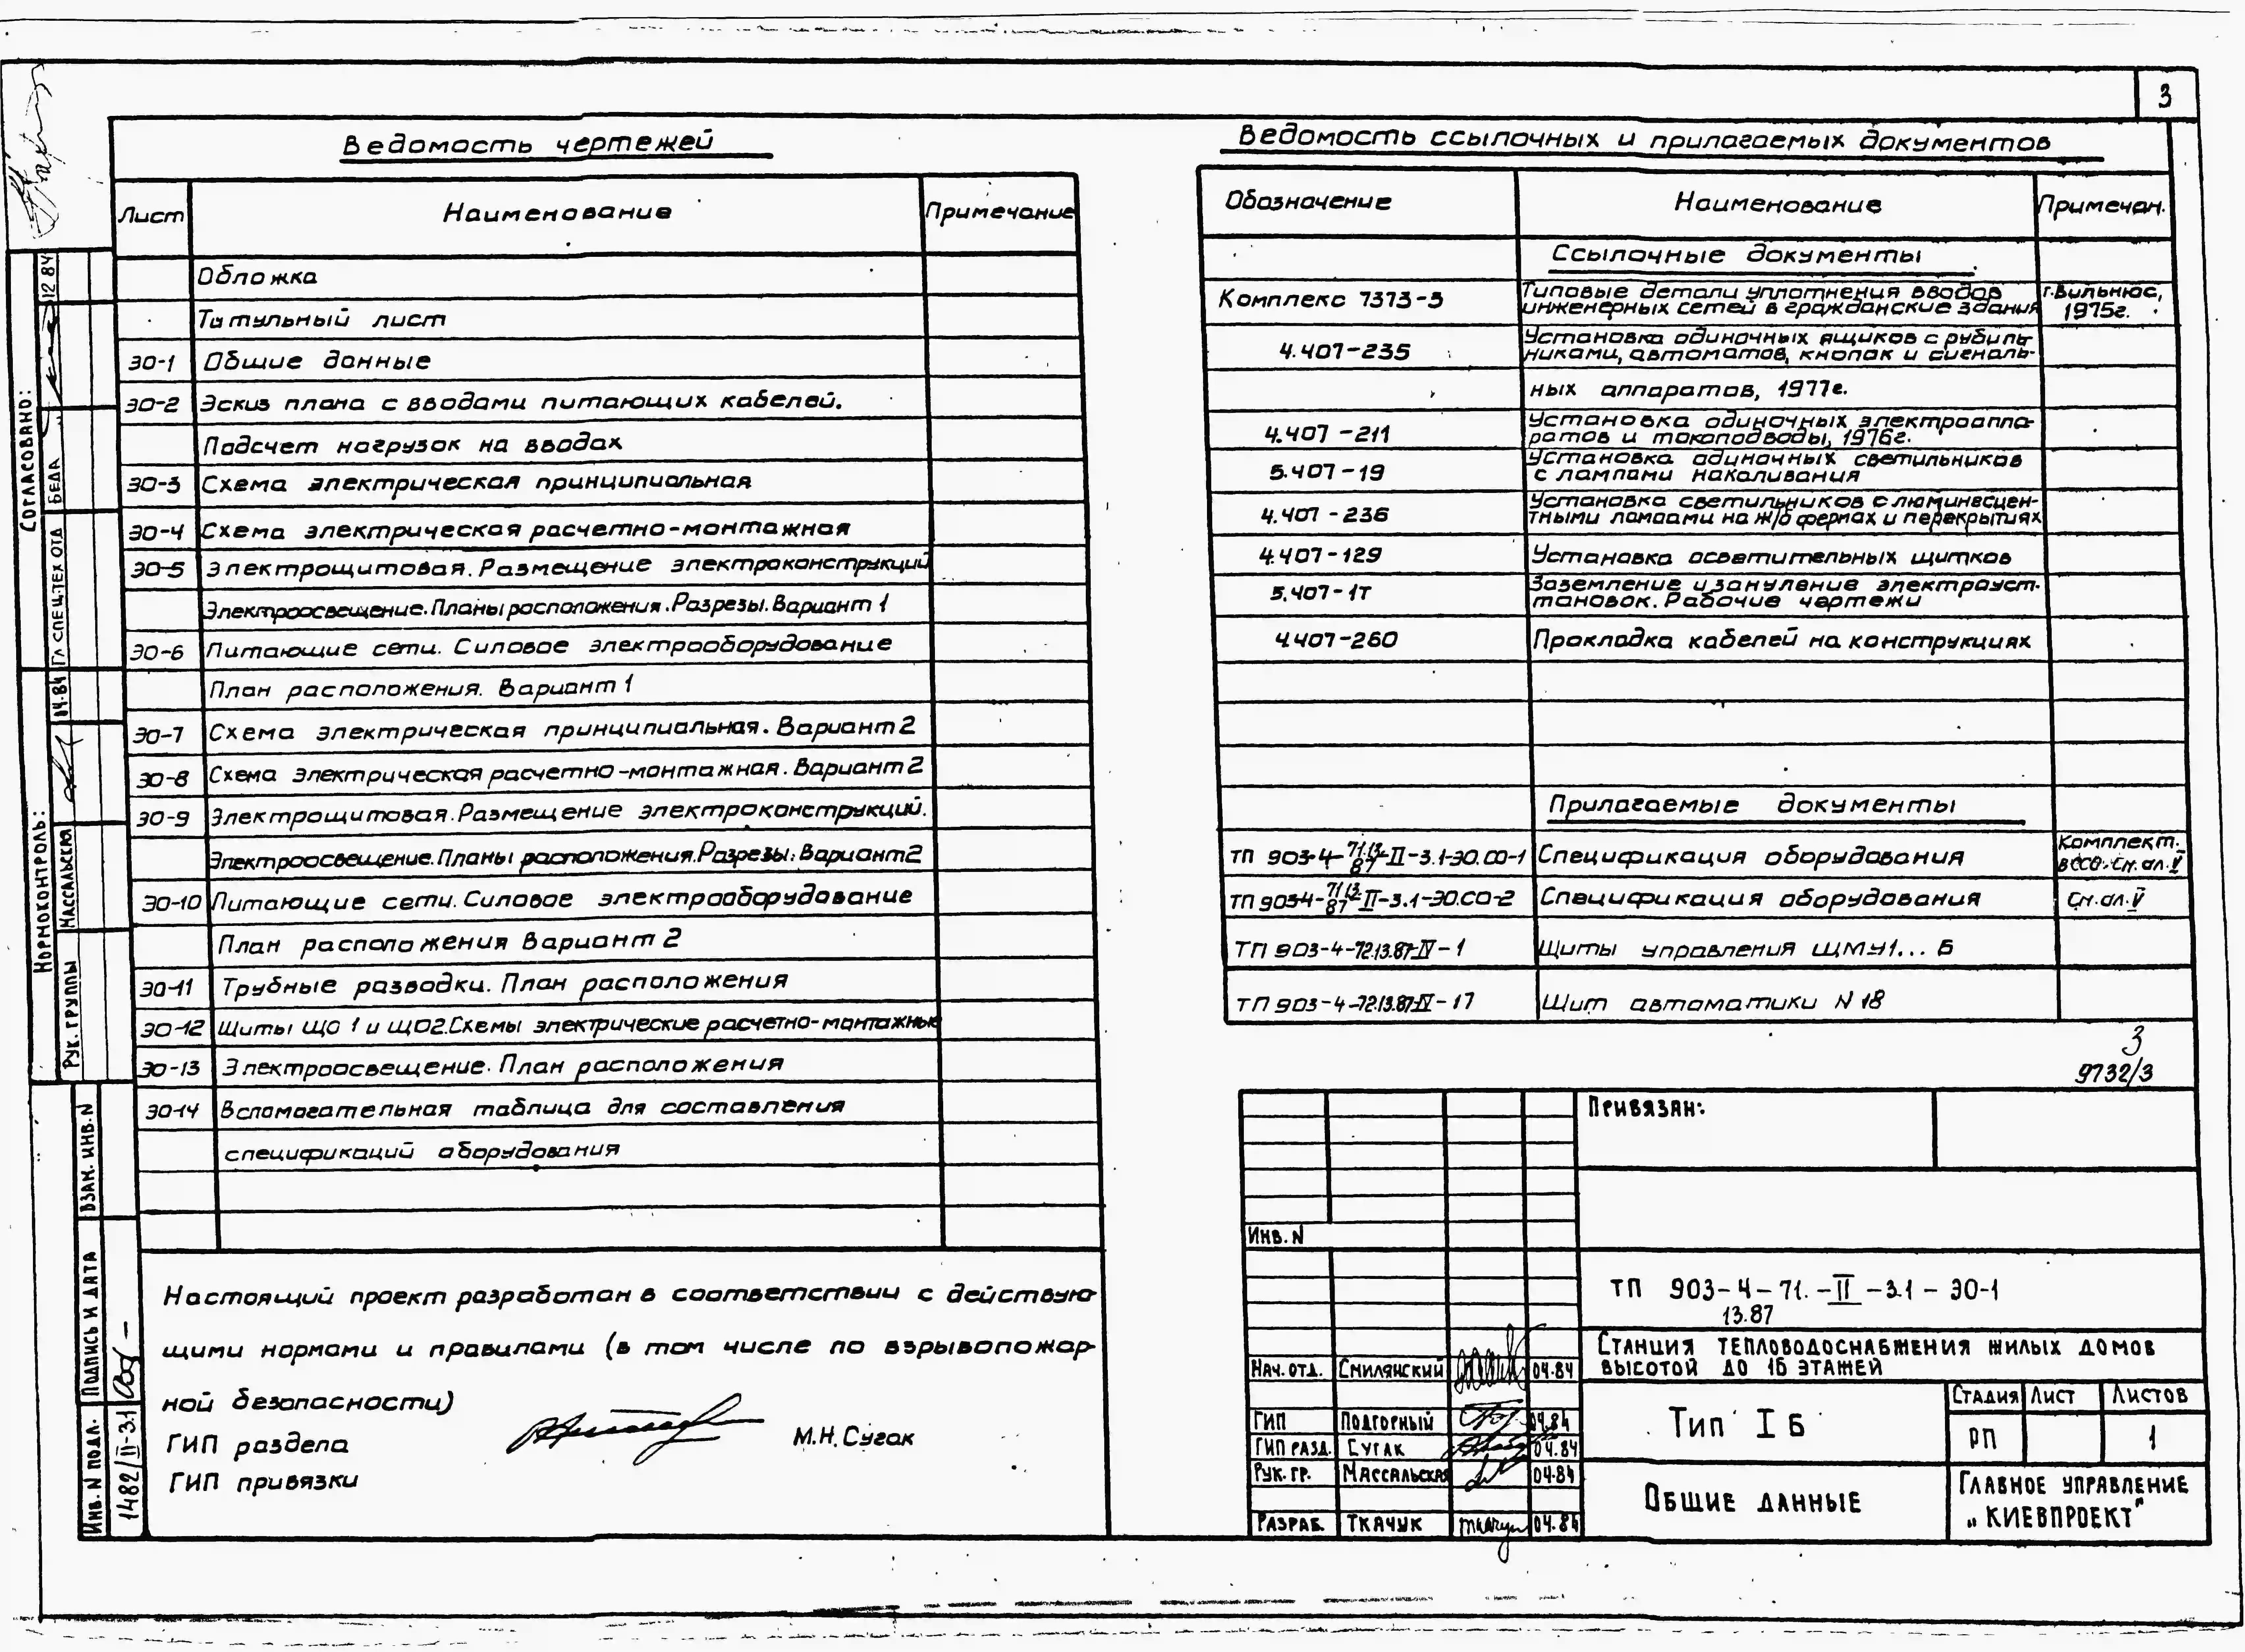 3
Ведомость чертежей
Лист Наименование Примечание
Обложка
Титульный лист
ЭО-1 Общие данные
ЭО-2 Эскиз плана с вводами питающих кабелей.
Подсчет нагрузок на вводах
ЭО-3 Схема электрическая принципиальная
ЭО-4 Схема электрическая расчетно-монтажная
ЭО-5 Электрощитовая. Размещение электроконструкций
Электроосвещение. Планы расположения. Разрезы. Вариант 1
ЭО-6 Питающие сети. Силовое электрооборудование
План расположения. Вариант 1
ЭО-7 Схема электрическая принципиальная. Вариант 2
ЭО-8 Схема электрическая расчетно-монтажная. Вариант 2
ЭО-9 Электрощитовая. Размещение электроконструкций.
Электроосвещение. Планы расположения. Разрезы. Вариант 2
ЭО-10 Питающие сети. Силовое электрооборудование
План расположения Вариант 2
ЭО-11 Трубные разводки. План расположения
ЭО-12 Щиты ЩО 1 и ЩО2. Схемы электрические расчетно-монтажные
ЭО-13 Электроосвещение. План расположения
ЭО-14 Вспомогательная таблица для составления
спецификаций оборудования
Настоящий проект разработан в соответствии с действую-
щими нормами и правилами (в том числе по взрывопожар-
ной безопасности)
ГИП раздела М.Н. Сугак
ГИП привязки
Ведомость ссылочных и прилагаемых документов
Обозначение Наименование Примечан.
Ссылочные документы
Комплекс 7373-3 Типовые детали уплотнения вводов г. Вильнюс,
инженерных сетей в гражданские здания 1975г.
4.407-235 Установка одиночных ящиков с рубиль-
никами, автоматов, кнопок и сигналь-
ных аппаратов, 1977г.
4.407-211 Установка одиночных электроаппа-
ратов и токоподводы, 1976г.
5.407-19 Установка одиночных светильников
с лампами накаливания
4.407-236 Установка светильников с люминесцен-
тными лампами на ж/б фермах и перекрытиях
4.407-129 Установка осветительных щитков
5.407-1т Заземление и зануление электроуст-
тановок. Рабочие чертежи
4.407-260 Прокладка кабелей на конструкциях
Прилагаемые документы
ТП 903-4-71.13.87-II-3.1-ЭО.СО-1 Спецификация оборудования Комплект.
в ССО. См. ал. V
ТП 903-4-71.13.87-II-3.1-ЭО.СО-2 Спецификация оборудования См. ал. V
ТП 903-4-72.13.87-IV-1 Щиты управления ЩМУ1...6
ТП 903-4-72.13.87-IV-17 Щит автоматики N 18
3
9732/3
Привязан:
Инв. N
ТП 903-4-71.-II-3.1-ЭО-1
13.87
Станция тепловодоснабжения жилых домов
высотой до 16 этажей
Нач. отд. Смилянский 04.84
ГИП Подгорный 04.84
ГИП разд. Сугак 04.84
Рук. гр. Массальская 04.84
Разраб. Ткачук Ткачук 04.84
Тип I б
Стадия Лист Листов
РП 1
Общие данные
Главное управление
„КИЕВПРОЕКТ"
Согласовано:
Гл спец. тех отд Беда 12 84
Нормоконтроль:
Рук. группы Массальская 04.84
Взам. инв. N
Подпись и дата
Инв. N подл. 1482/II-3.1